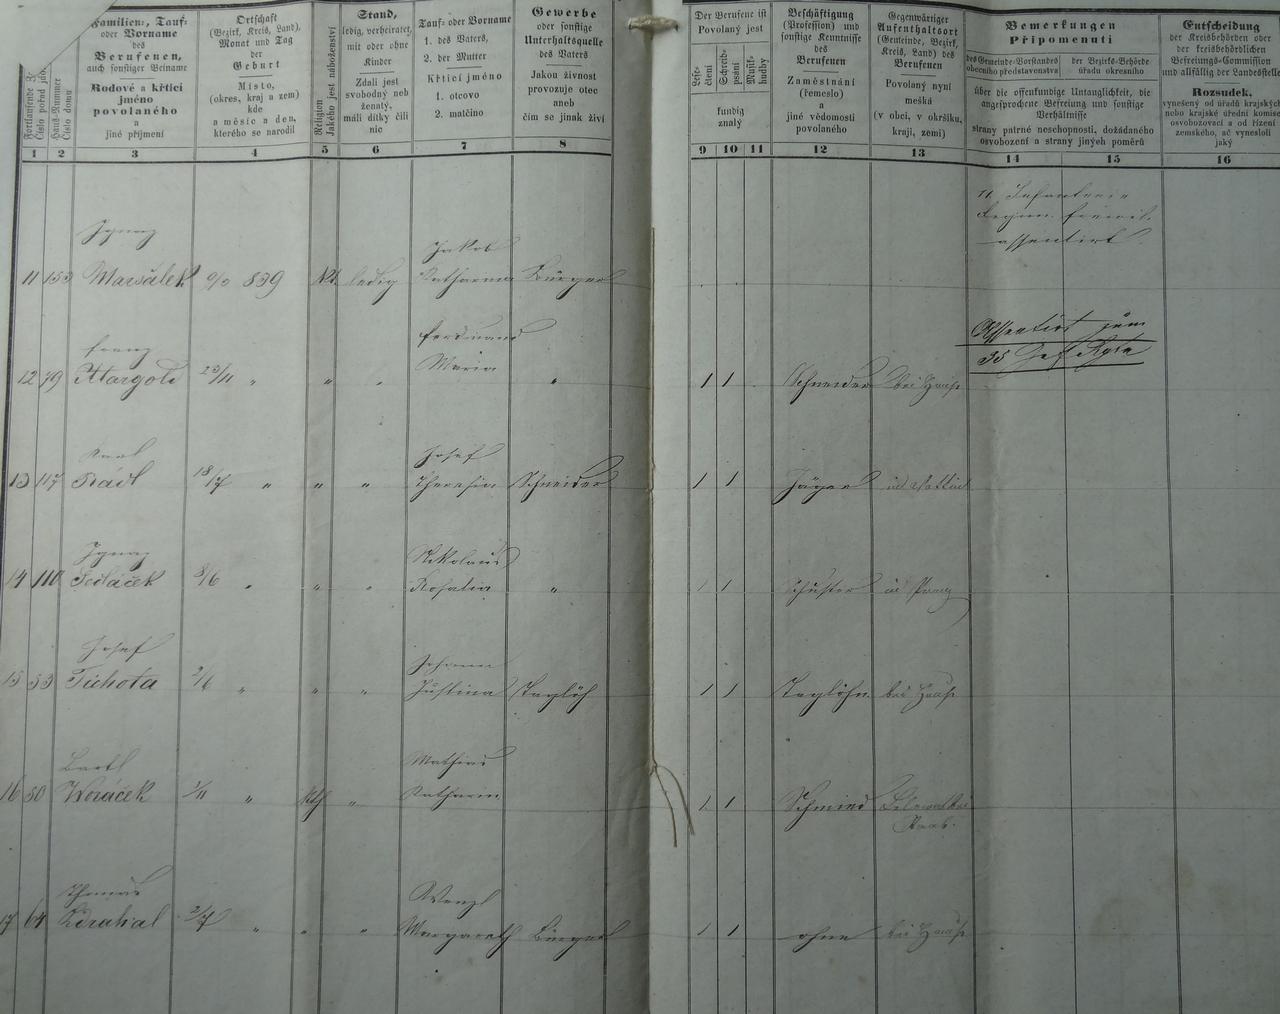 Fortlaufende
Číslo pořad.
Haus-Nummer
Číslo domu
Familien-, Tauf-
oder Vorname
des
Berufenen,
auch sonstiger Beiname
Rodové a křticí
jméno
povolaného
a
jiné příjmení
Ortschaft
(Bezirk, Kreis, Land),
Monat und Tag
der
Geburt
Místo,
(okres, kraj a zem)
kde
a měsíc a den,
kterého se narodil
Religion
Jakého jest náboženství
Stand,
ledig, verheiratet,
mit oder ohne
Kinder
Zdali jest
svobodný neb
ženatý,
máli dítky čili
nic
Tauf- oder Vorname
1. des Vaters,
2. der Mutter
Křticí jméno
1. otcovo
2. matčino
Gewerbe
oder sonstige
Unterhaltsquelle
des Vaters
Jakou živnost
provozuje otec
aneb
čím se jinak živí
Der Berufene ist
Povolaný jest
Lese-
čtení
Schreib-
psání
Musik-
hudby
kundig
znalý
Beschäftigung
(Profession) und
sonstige Kenntnisse
des
Berufenen
Zaměstnání
(řemeslo)
a
jiné vědomosti
povolaného
Gegenwärtiger
Aufenthaltsort
(Gemeinde, Bezirk,
Kreis, Land) des
Berufenen
Povolaný nyní
mešká
(v obci, v okršíku,
kraji, zemi)
Bemerkungen
Připomenutí
des Gemeinde-Vorstandes
obecního představenstva
der Bezirks-Behörde
úřadu okresního
über die offenkundige Untauglichkeit, die
angesprochene Befreiung und sonstige
Verhältnisse
strany patrné neschopnosti, dožádaného
osvobození a strany jiných poměrů
Entscheidung
der Kreisbehörden oder
der kreisbehördlichen
Befreiungs-Commission
und allfällig der Landesstelle
Rozsudek,
vynešený od úřadů krajských
nebo krajské úřední komise
osvobozovací a od řízení
zemského, ač vynesloli
jaký
1 2 3 4 5 6 7 8 9 10 11 12 13 14 15 16
11. Infanterie
Regim. freiwil.
assentirt
Ignaz
Jakob
11 153 Maršálek 839 ledig Katharina Bürger
Franz
Ferdinand
Assentirt zum
35
12 79 Margold 23/11 " " " Maria " 1 1 Schneider bei Hause
Karl
Josef
13 117 Rádl 18/7 " " " Theresia Schneider 1 1 Jäger
Ignaz
Nikolaus
14 110 Sedláček 8/6 " " " Rosalia " 1 1 Schuster in Prag
Josef
Johann
15 53 Tichota 2/6 " " " Justina Taglöh 1 1 Taglöhn. bei Hause
Bartl
Mathias
16 50 Woráček 1/11 " Kth " Katharin 1 1 Schmied
Thomas
Wenzl
17 64 Zdrahal 2/7 " " " Margareth Bürger 1 1 ohne bei Hause